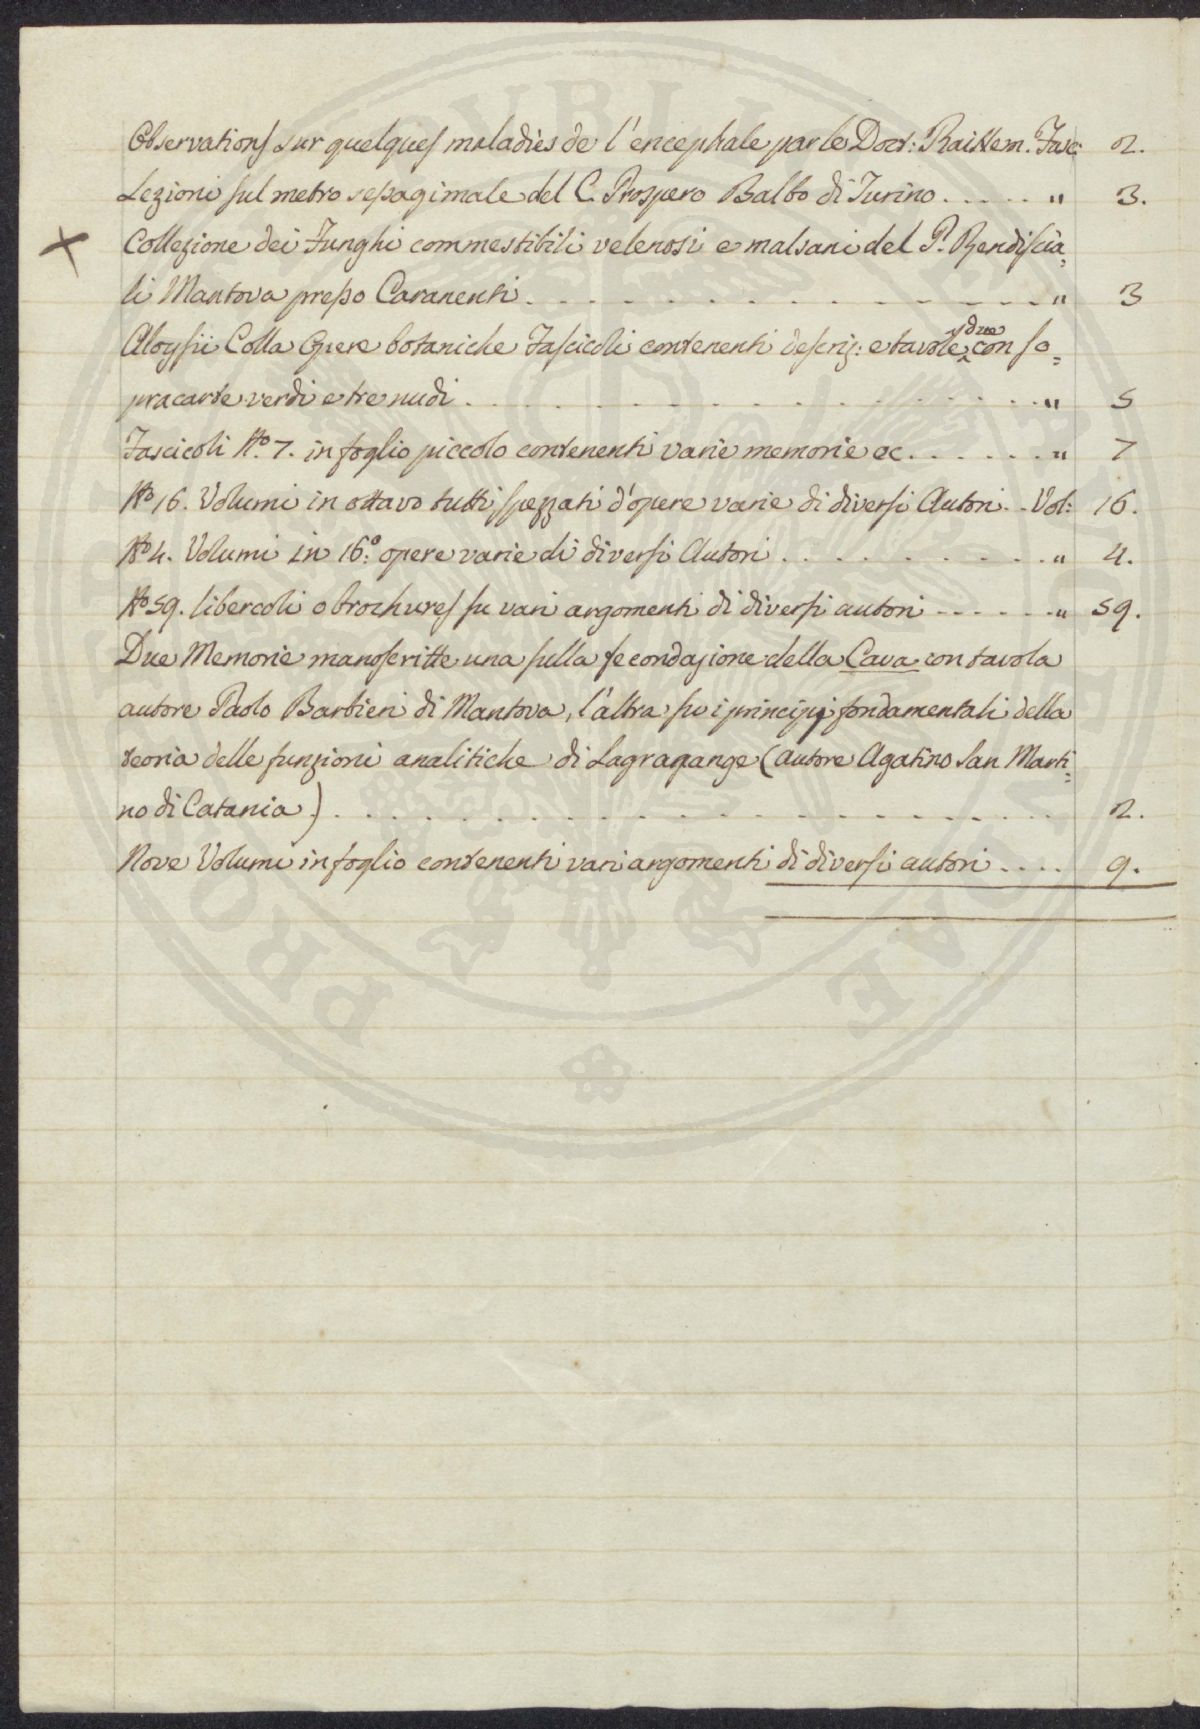 Observations sur quelques maladies de l'encephale par le Doct: Raikem. Fasc: 2.
Lezioni sul metro sessagimale del C. Prospero Balbo di Turino ..... " 3.
Collezione dei Funghi commestibili velenosi e malsani del P. Bendiscia=
li Mantova presso Caranenti . . . . . . . . . . . . . . . . . " 3
Aloysii Colla Opere botaniche Fascicoli contenenti descriz: e tavole due con so=
pracarte verdi e tre nudi . . . . . . . . . . . . . . . . . . " 5
Fascicoli N.º 7. in foglio piccolo contenenti varie memorie ec. . . . . . . " 7
N.º 16. Volumi in ottavo tutti spezzati d'opere varie di diversi Autori. . Vol: 16.
N.º 4. Volumi in 16.º opere varie di diversi Autori . . . . . . . . . . . " 4.
N.º 59. libercoli o brochures su vari argomenti di diversi autori . . . . . . " 59.
Due Memorie manoscritte una sulla fecondazione della Cava con tavola
autore Paolo Barbieri di Mantova, l'altra su i principj fondamentali della
teoria delle funzioni analitiche di Lagragange (autore Agatino San Marti=
no di Catania) . . . . . . . . . . . . . . . . . . . . . . . . 2.
Nove Volumi in foglio contenenti vari argomenti di diversi autori .... 9.